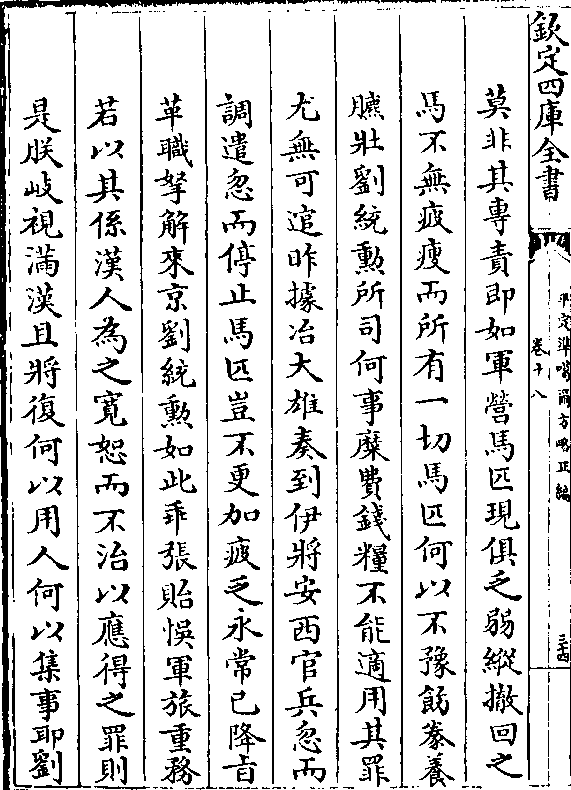 欽定四庫全書
平定準噶爾方略正編
卷十八
三十四
莫非其專責即如軍營馬匹現俱乏弱縱撤回之
馬不無疲瘦而所有一切馬匹何以不豫飭豢養
臕壯劉統勲所司何事糜費錢糧不能適用其罪
尤無可逭昨據冶大雄奏到伊將安西官兵忽而
調遣忽而停止馬匹豈不更加疲乏永常已降㫖
革職拏解來京劉統勲如此乖張貽悞軍旅重務
若以其係漢人為之寛恕而不治以應得之罪則
是朕歧視滿漢且將復何以用人何以集事耶劉